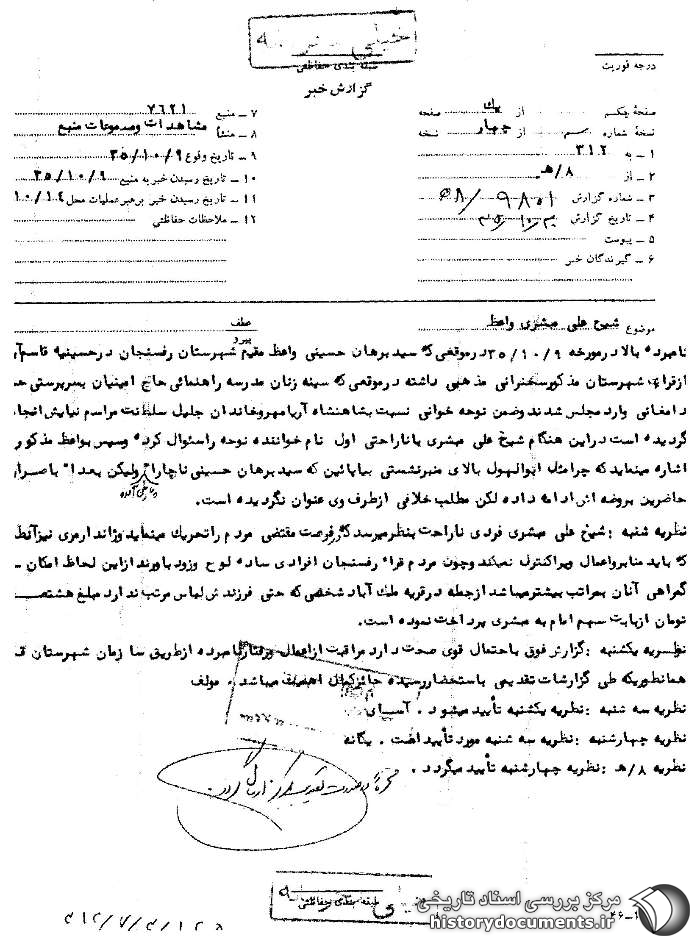 خیلی محرمانه
طبقه بندی حفاظتی
درجه فوریت
گزارش خبر
صفحهٔ یکم از یک صفحه
نسخهٔ شماره سم از چهار نسخه
۱ ـ به ۳۱۲
۲ ـ از ۸/هـ
۳ ـ شماره گزارش ۹۸۰۱/
۴ ـ تاریخ گزارش
۵ ـ پیوست
۶ ـ گیرندگان خبر
۷ ـ منبع ۷۶۲۱
۸ ـ منشأ مشاهدات ومسموعات منبع
۹ ـ تاریخ وقوع ۳۵/۱۰/۹
۱۰ ـ تاریخ رسیدن خبر به منبع ۳۵/۱۰/۹
۱۱ ـ تاریخ رسیدن خبر برهبر عملیات محل ۱۰/۱۴
۱۲ ـ ملاحظات حفاظتی
موضوع شیخ علی مبشری واعظ
عطف
پیرو
نامبرده بالا درمورخه ۳۵/۱۰/۹ درموقعی که سید برهان حسینی واعظ مقیم شهرستان رفسنجان درحسینیه قاسم
ازقراء شهرستان مذکورسخنرانی مذهبی داشته درموقعی که سینه زنان مدرسه راهنمائی حاج امینیان بسرپرستی
دامغانی وارد مجلس شدند وضمن نوحه خوانی نسبت بشاهنشاه آریامهروخاندان جلیل سلطنت مراسم نیایش انجا
گردیده است دراین هنگام شیخ علی مبشری باناراحتی اول نام خواننده نوحه راسئوال کرده وسپس بواعظ مذکور
اشاره مینماید که چرامثل ابوالهول بالای منبرنشستی بیاپائین که سید برهان حسینی ناچارا ولیکن بعدا باصرار
حاضرین بروضه اش ادامه داده لکن مطلب خلافی ازطرف وی عنوان نگردیده است.
نظریه شنبه : شیخ علی مبشری فردی ناراحت بنظرمیرسد که درفرصت مقتضی مردم راتحریك مینماید وژاندارمری نیزآنط
که باید منابرواعمال ویراکنترل نمیکند وچون مردم قراء رفسنجان افرادی ساده لوح وزود باورند ازاین لحاظ امکان ـ
گمراهی آنان بمراتب بیشترمیباشد ازجمله درقریه ملك آباد شخصی که حتی فرزندش لباس مرتب ندارد مبلغ هشتصد
تومان ازبابت سهم امام به مبشری پرداخت نموده است.
نظریه یکشنبه : گزارش فوق باحتمال قوی صحت دارد مراقبت ازاعمال ورفتارنامبرده ازطریق سازمان شهرستان
همانطوریکه طی گزارشات تقدیمی باستحضاررسیده حائزکمال اهمیت میباشد . مولف
نظریه سه شنبه : نظریه یکشنبه تأیید میشود . آسیای
نظریه چهارشنبه : نظریه سه شنبه مورد تأیید است . یگانه
نظریه ۸/هـ : نظریه چهارشنبه تأیید میگردد .
طبقه بندی حفاظتی
مرکز بررسی اسناد تاریخی
historydocuments.ir